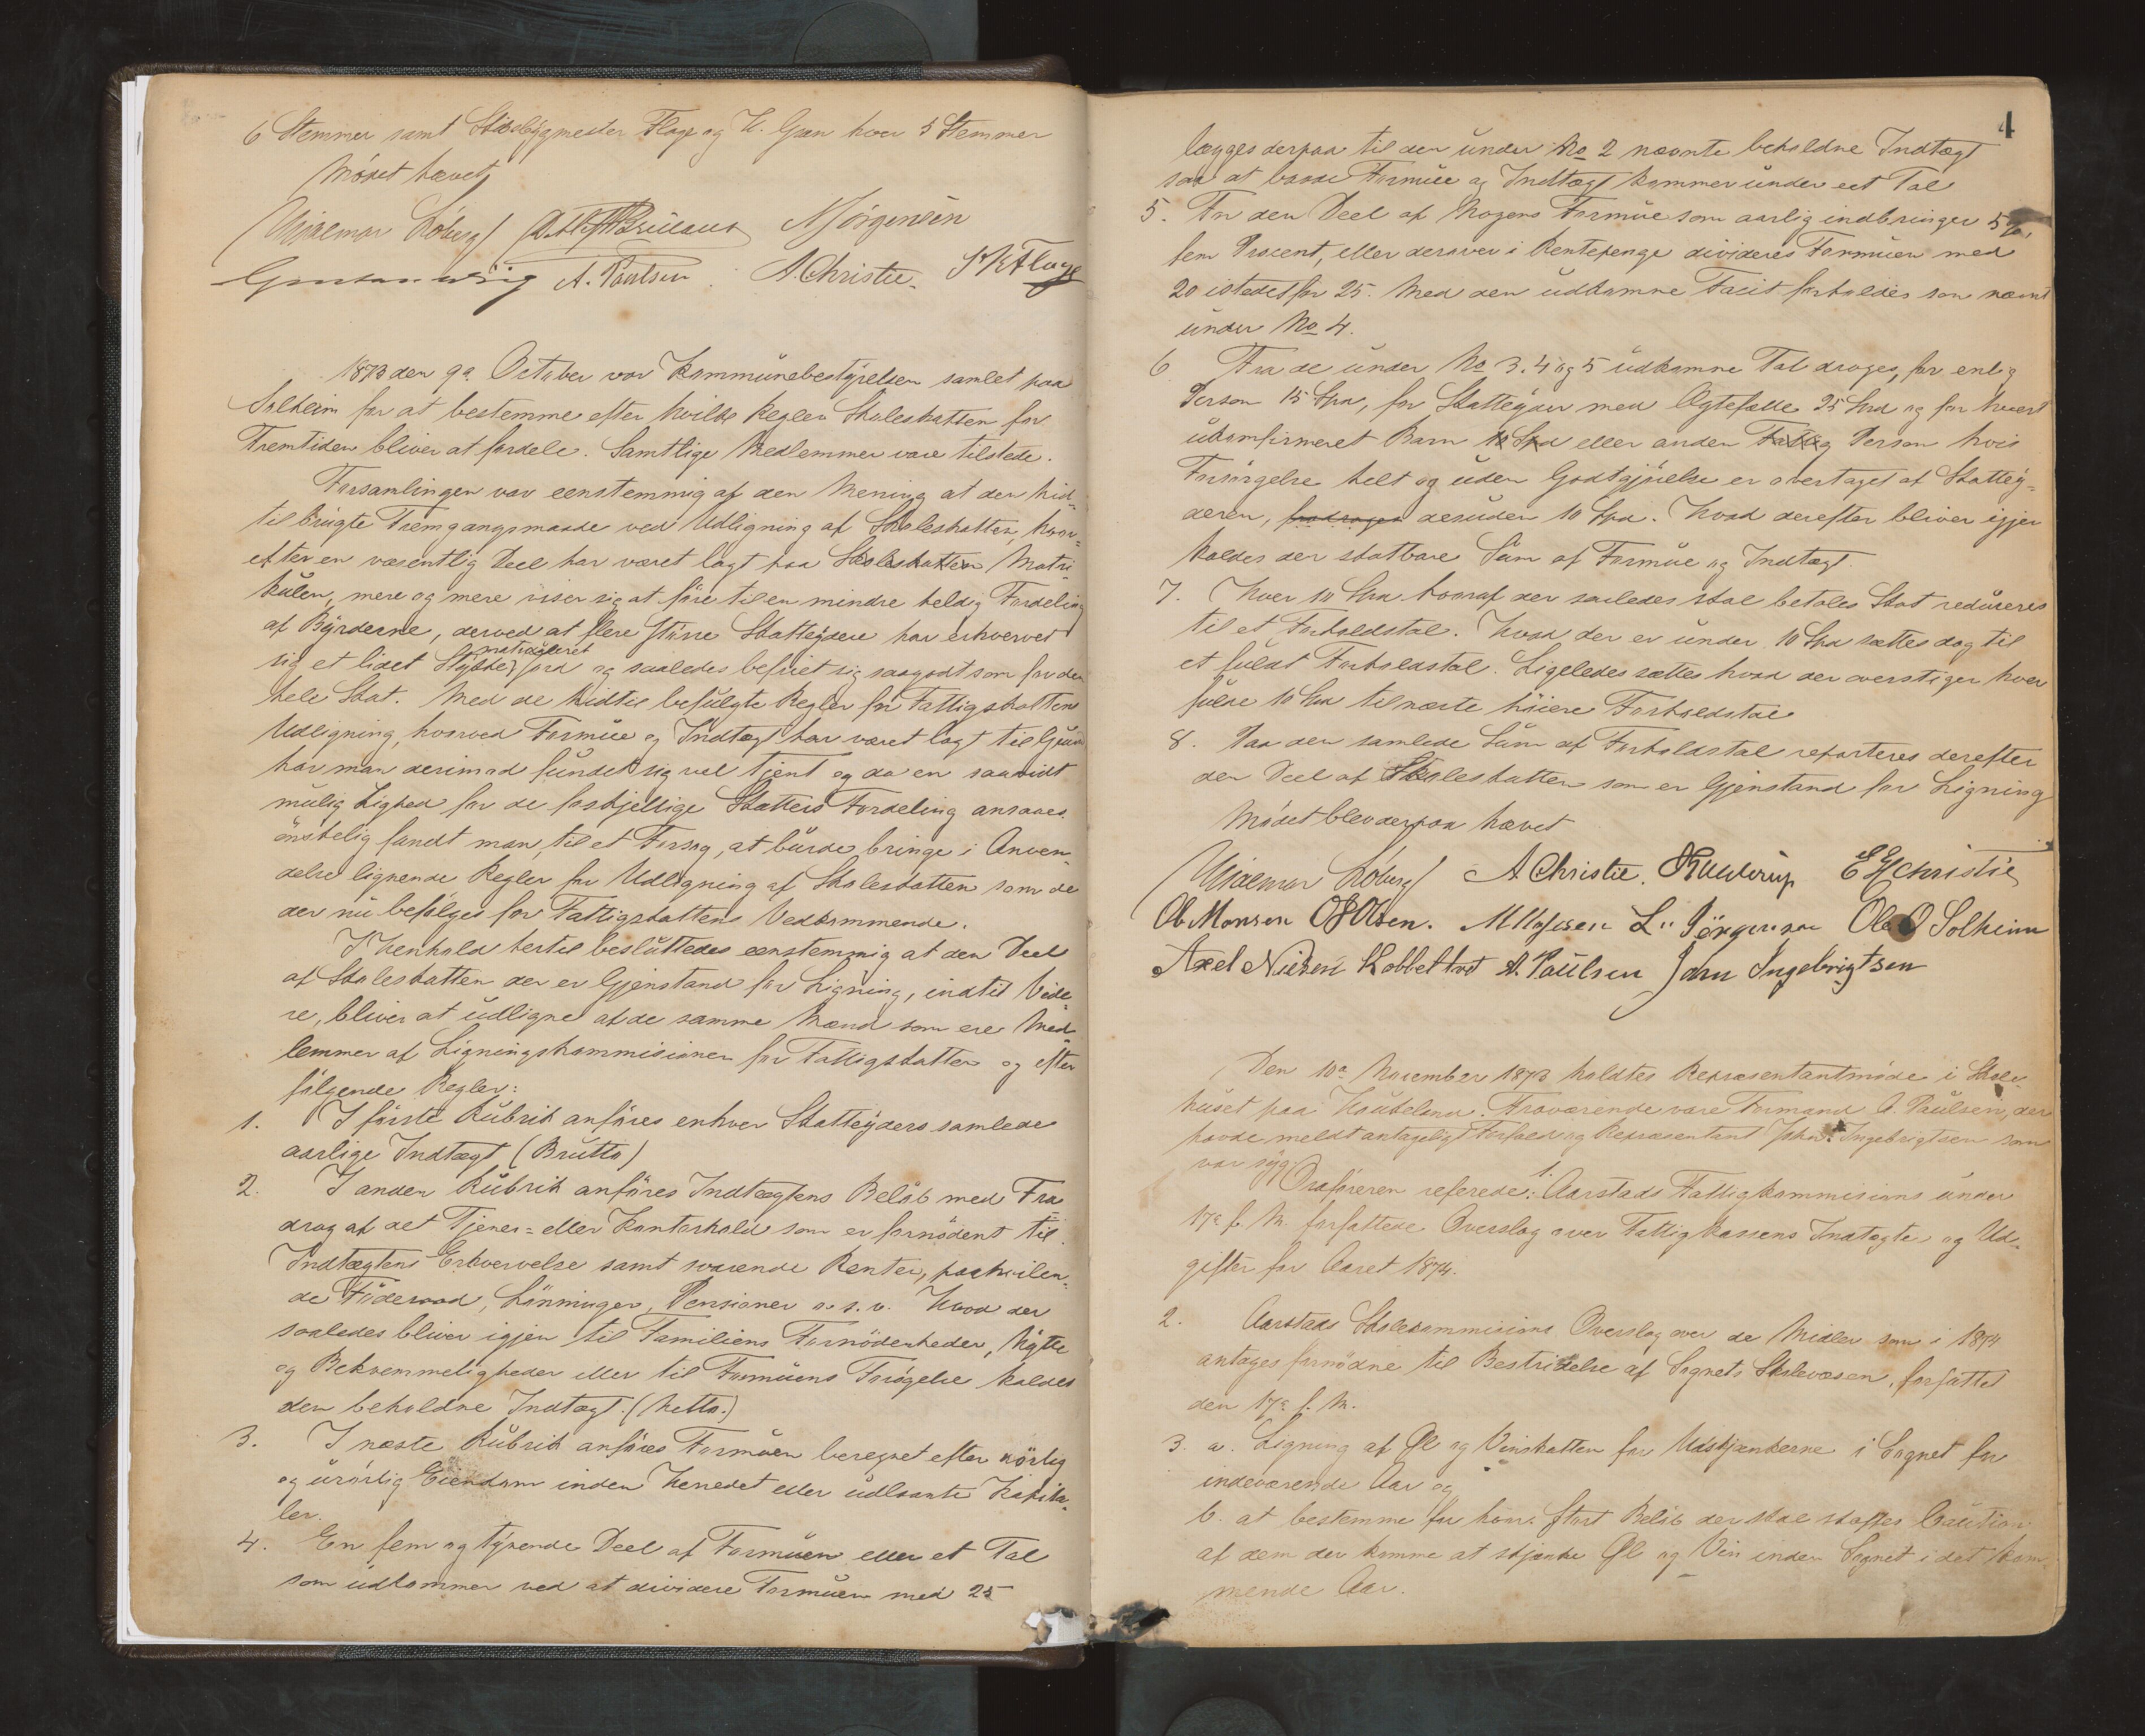 6 Stemmer samt Skibsbygmester Flage og H. Gran hver 5 Stemmer
Mödet hævet
Hjalmar Löberg A. Jörgensen
A. Poulsen A. Christie. Flage
1873 den 9de October var Kommunebestyrelsen samlet paa
Solheim for at bestemme efter hvilke Regler Skoleskatten for
Fremtiden bliver at fordele. Samtlige Medlemmer vare tilstede.
Forsamlingen var eenstemmig af den Mening at den hid-
til brugte Fremgangsmaade ved Udligning af Skoleskatten, hvor-
efter en væsentlig Deel har været lagt paa Skoleskatten Matri-
kulen, mere og mere viser sig at före til en mindre heldig Fordeling
af Byrderne, derved at flere större Skatteydere har erhvervet
matriculeret
sig et lidet Stykke Jord og saaledes befriet sig saagodtsom for den
hele Skat. Med de hidtil befulgte Regler for Fattigskattens
Udligning, hvorved Formue og Indtægt har været lagt til Grund
har man derimod fundet sig vel tjent og da en saavidt
mulig Lighed for de forskjellige Skatters Fordeling ansaaes
önskelig fandt man, til et Forsøg, at burde bringe i Anven-
delse lignende Regler for Udligning af Skoleskatten som de
der nu befølges for Fattigskattens Vedkommende.
I Henhold hertil besluttedes eenstemmig at den Deel
af Skoleskatten der er Gjenstand for Ligning, indtil Vide-
re, bliver at udligne af de samme Mænd som ere Med-
lemmer af Ligningskommisionen for Fattigskatten og efter
fölgende Regler:
1. I förste Rubrik anföres enhver Skatteyders samlede
aarlige Indtægt (Brutto)
2. I anden Rubrik anföres Indtægtens Belöb med Fra-
drag af det Tjener- eller Kontorhold som er fornödent til
Indtægtens Erhvervelse samt svarende Renter, paahvilen-
de Föderaad, Lönninger, Pensioner o. s. v. Hvad der
saaledes bliver igjen til Familiens Fornödenheder, Nytte
og Bekvemmeligheder eller til Formuens Forögelse kaldes
den beholdne Indtægt. (Netto.)
3. I næste Rubrik anföres Formuen beregnet efter rörlig
og urörlig Eiendom inden Herredet eller udlaante Kapita-
ler.
4. En fem og tyvende Deel af Formuen eller et Tal
som udkommer ved at dividere Formuen med 25
4
lægges derpaa til den under No 2 nævnte beholdne Indtægt
saa at baade Formue og Indtægt kommer under eet Tal
5. For den Deel af Nogens Formue som aarlig indbringer 5 %,
fem Procent, eller derover i Rentepenge divideres Formuen med
20 istedetfor 25. Med den udkomne Facit forholdes som nævnt
under No 4.
6 Fra de under No 3. 4 og 5 udkomne Tal drages, for enlig
Person 15 Spd, for Skatteyder med Ægtefælle 25 Spd og for hvert
ukonfirmeret Barn 10 Spd eller anden Fattig Person hvis
Forsörgelse helt og uden Godtgjörelse er overtaget af Skattey-
deren, fradrages desuden 10 Spd. Hvad derefter bliver igjen
kaldes den skatbare Sum af Formue og Indtægt.
7. Hver 10 Spd hvoraf der saaledes skal betales Skat reduceres
til et Forholdstal. Hvad der er under 10 Spd sættes dog til
et fuldt Forholdstal. Ligeledes sættes hvad der overstiger hver
fulde 10 Spd til næste höiere Forholdstal
8. Paa den samlede Sum af Forholdstal reparteres derefter
den Deel af Skoleskatten som er Gjenstand for Ligning
Mödet blev derpaa hævet
Hjalmar Löberg A Christie. E H Christie
Ob Monsen O Olsen. L. Jörgensen Ole O Solheim
Axel Nielsen Kobbeltvet A. Paulsen John Ingebrigtsen
Den 10de November 1873 holdtes Repræsentantmöde i Skole-
huset paa Haukeland. Fraværende vare Formand A. Paulsen, der
havde meldt antageligt Forfald og Repræsentant John Ingebrigtsen som
var syg
Ordföreren referede: 1. Aarstads Fattigkommisions under
17de f. M. forfattede Overslag over Fattigkassens Indtægter og Ud-
gifter for Aaret 1874.
2. Aarstads Skolekommisions Overslag over de Midler som i 1874
antages fornödne til Bestridelse af Sognets Skolevæsen, forfattet
den 17de f. M.
3. a. Ligning af Øl og Vinskatten for Udskjænkerne i Sognet for
indeværende Aar og
b. at bestemme for hvor stort Belöb der skal skaffes Caution
af dem der komme at skjænke Øl og Vin inden Sognet i det kom-
mende Aar.